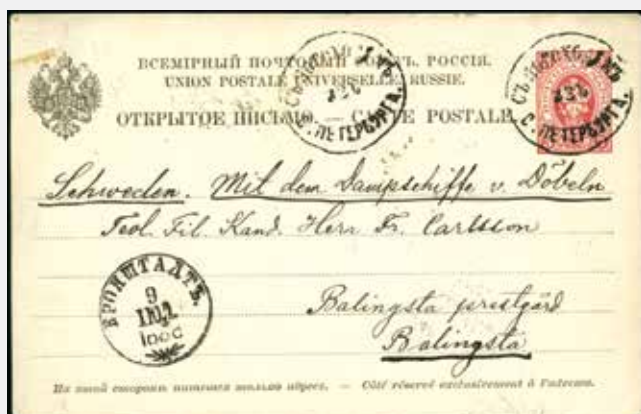 ВСЕМІРНЫЙ ПОЧТОВЫЙ СОЮЗЪ. РОССІЯ.
UNION POSTALE UNIVERSELLE. RUSSIE.
ОТКРЫТОЕ ПИСЬМО. — CARTE POSTALE.
С. ПЕТЕРБУРГА.
С. ПЕТЕРБУРГА.
Schweden. Mit dem Dampschiffe v. Döbeln
Teol. Fil. Kand. Herr Fr. Carlsson
КРОНШТАДТЪ.
9
ІЮЛ.
Balingsta prestgård
Balingsta
На этой сторонѣ пишется только адресъ. — Côté réservé exclusivement à l'adresse.